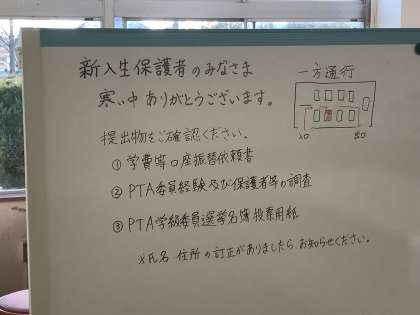 新入生保護者のみなさま
寒い中 ありがとうございます。
一方通行
入口
出口
提出物をご確認ください。
① 学費等口座振替依頼書
② PTA委員経験及び保護者等の調査
③ PTA学級委員選挙名簿投票用紙
※氏名 住所の訂正がありましたら、お知らせください。